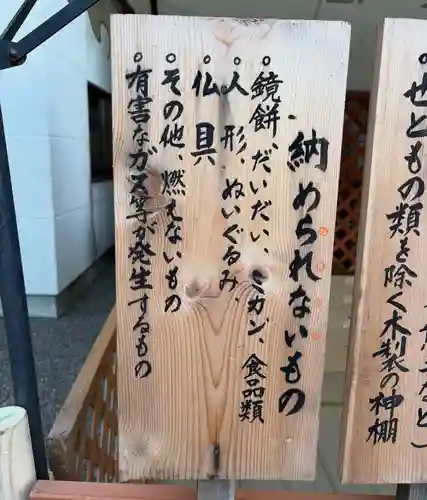 納められないもの
。鏡餅、だいだい、ミカン、食品類
。人形、ぬいぐるみ
。仏具
。その他、燃えないもの
。有害なガス等が発生するもの
せともの類を除く
木製の神棚
など)